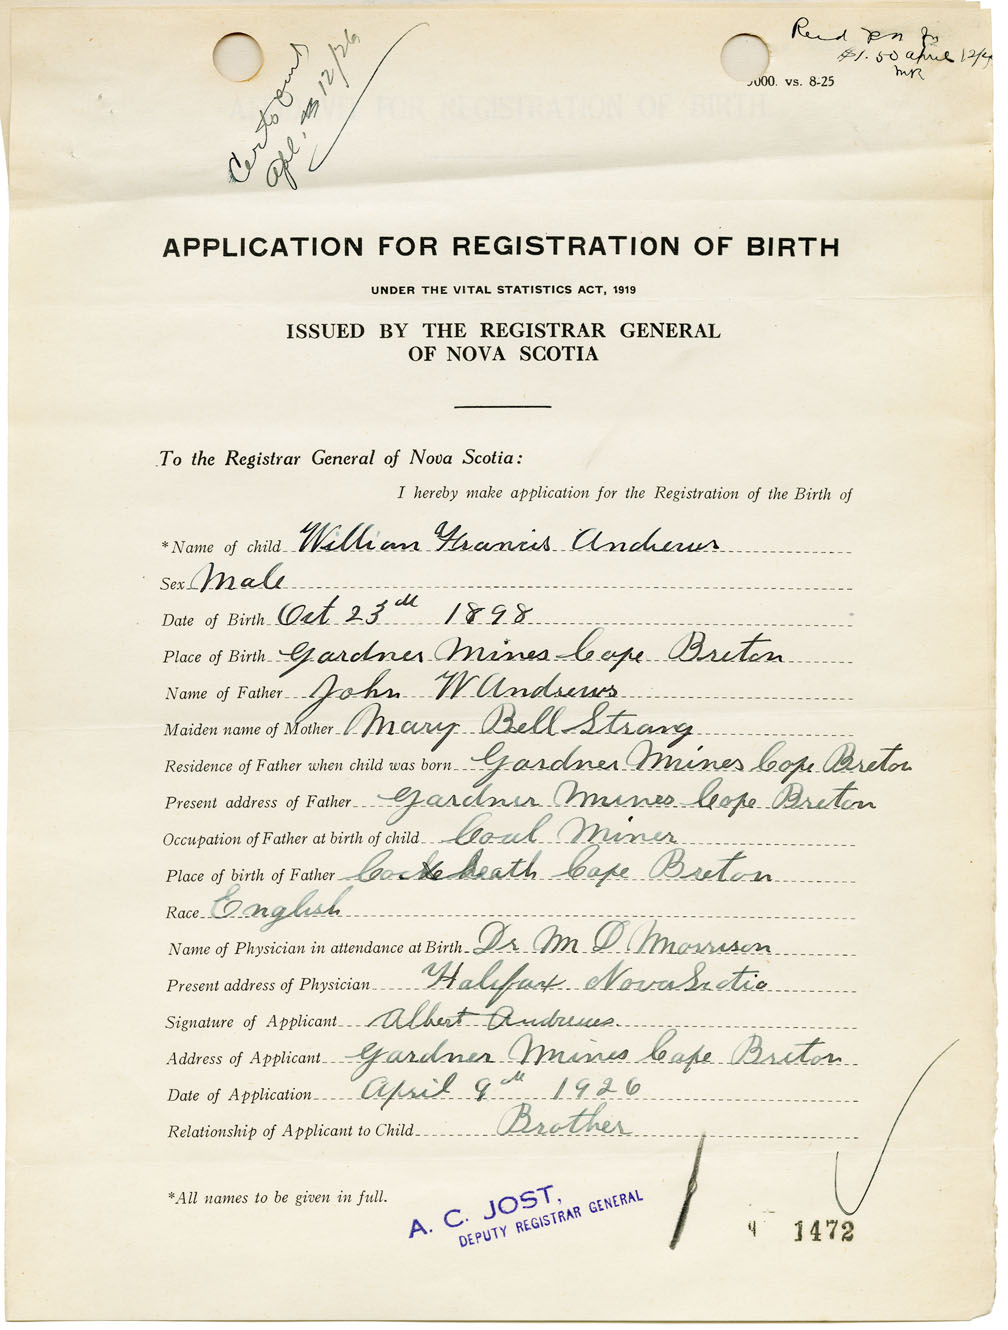 Cert. & Ans'd
Apl. 12/26
Recd PN for
$1.50 april 12/26
MR
000. vs. 8-25
APPLICATION FOR REGISTRATION OF BIRTH
UNDER THE VITAL STATISTICS ACT, 1919
ISSUED BY THE REGISTRAR GENERAL
OF NOVA SCOTIA
To the Registrar General of Nova Scotia:
I hereby make application for the Registration of the Birth of
*Name of child William Francis Andrews
Sex Male
Date of Birth Oct 23th 1898
Place of Birth Gardner Mines Cape Breton
Name of Father John W Andrews
Maiden name of Mother Mary Bell Strang
Residence of Father when child was born Gardner Mines Cape Breton
Present address of Father Gardner Mines Cape Breton
Occupation of Father at birth of child Coal Miner
Place of birth of Father Coxheath Cape Breton
Race English
Name of Physician in attendance at Birth Dr M D Morrison
Present address of Physician Halifax Nova Scotia
Signature of Applicant Albert Andrews
Address of Applicant Gardner Mines Cape Breton
Date of Application April 9th 1926
Relationship of Applicant to Child Brother
*All names to be given in full.
A. C. JOST,
DEPUTY REGISTRAR GENERAL
1472